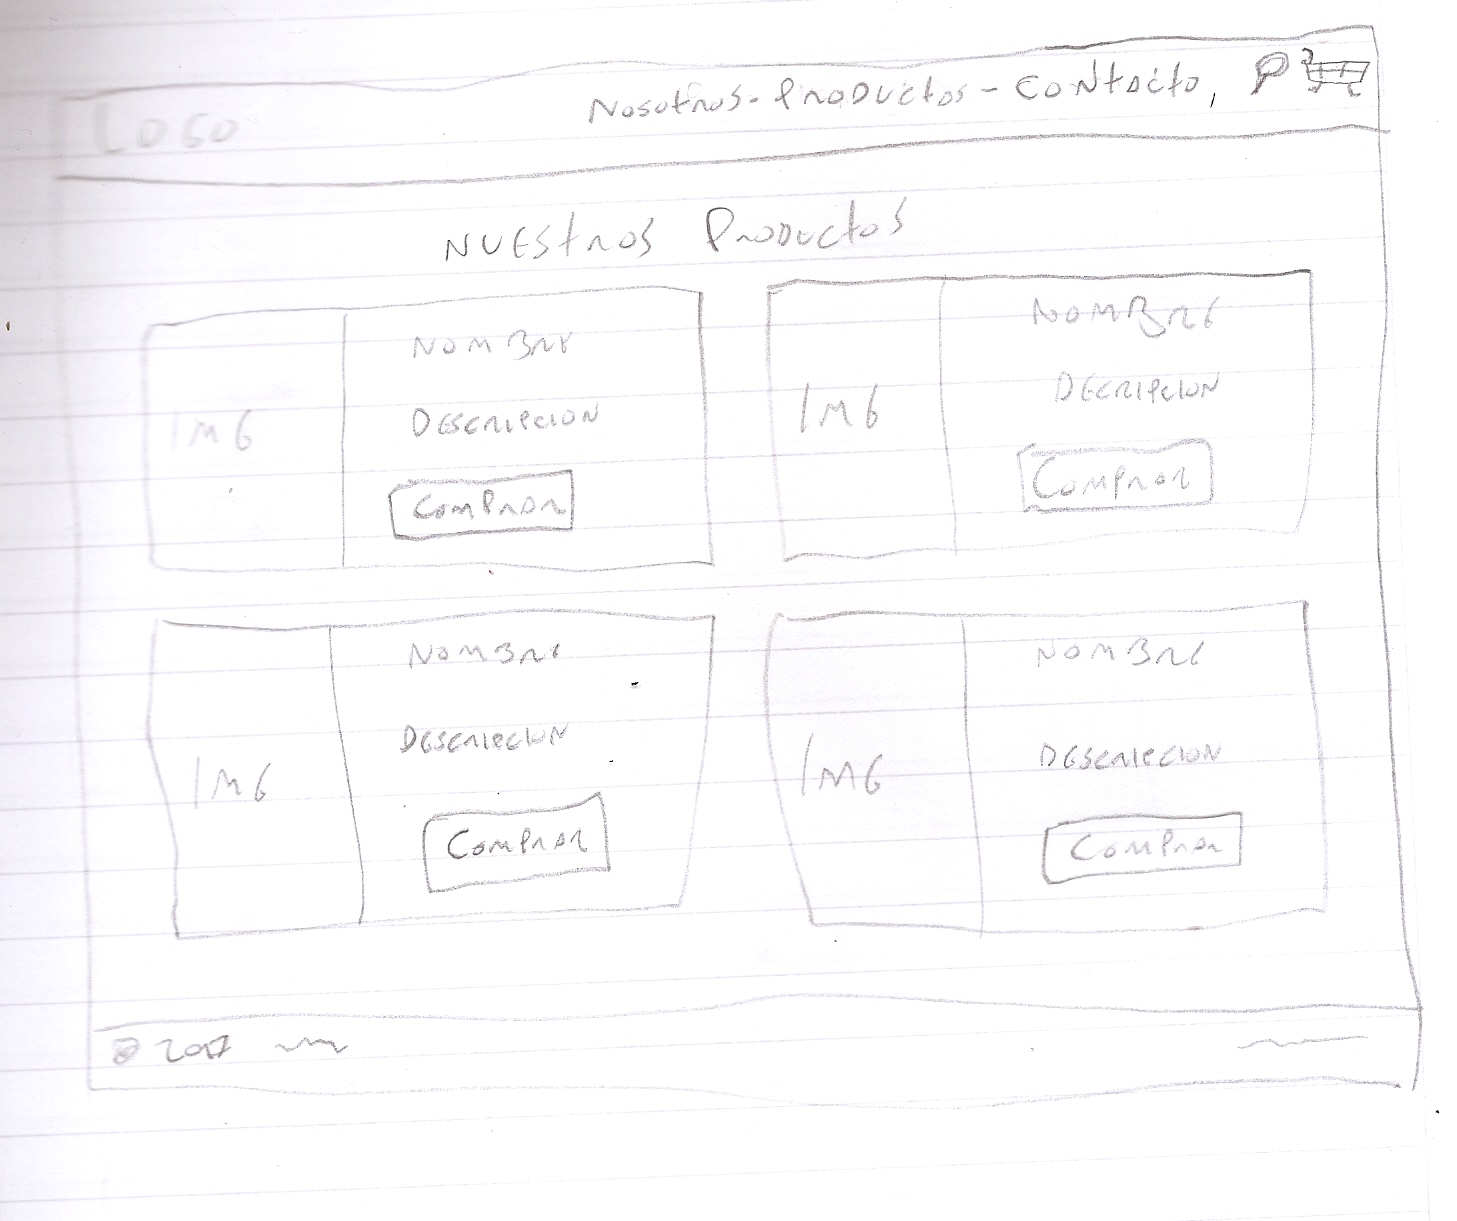 Logo
Nosotros - Productos - Contacto,
Nuestros Productos
IMG
Nombre
Descripcion
Comprar
IMG
Nombre
Decripcion
Comprar
IMG
Nombre
Descripcion
Comprar
IMG
Nombre
Descripcion
Comprar
© 2017